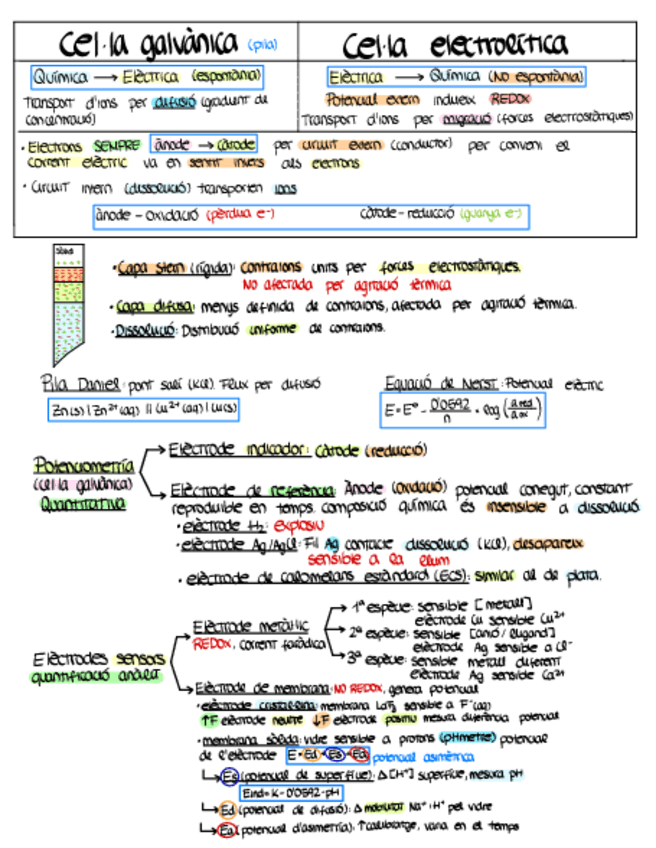 Cel·la galvànica (pila)
Química → Elèctrica (espontània)
Transport d'ions per difusió (gradient de
concentració)
Cel·la electrolítica
Elèctrica → Química (No espontània)
Potencial extern indueix REDOX
Transport d'ions per migració (forces electrostàtiques)
· Electrons SEMPRE ànode → càtode per circuit extern (conductor) per conveni el
corrent elèctric va en sentit invers als electrons
· Circuit intern (dissolució) transporten ions
ànode - oxidació (pèrdua e-) càtode - reducció (guanya e-)
· Capa Stern (rígida): contraions units per forces electrostàtiques.
No afectada per agitació tèrmica
· Capa difusa: menys definida de contraions, afectada per agitació tèrmica.
· Dissolució: Distribució uniforme de contraions.
Pila Daniel: pont salí (KCl). Flux per difusió
Zn(s) | Zn²⁺(aq) || Cu²⁺(aq) | Cu(s)
Equació de Nerst: Potencial elèctric
E = E° - 0'0592/n · log (a red/a ox)
Potenciometria
(cel·la galvànica)
Quantitativa
→ Elèctrode indicador: càtode (reducció)
→ Elèctrode de referència: Ànode (oxidació) potencial conegut, constant
reproduible en temps. composició química és insensible a dissolució.
· elèctrode H₂: explosiu
· elèctrode Ag/AgCl: Fil Ag contacte dissolució (KCl), desapareix
sensible a la llum
· elèctrode de calomelans estàndard (ECS): similar al de plata.
Elèctrodes sensors
quantificació anàlit
→ Elèctrode metàl·lic
REDOX, corrent faràdica
→ 1ª espècie: sensible [metall]
elèctrode Cu sensible Cu²⁺
→ 2ª espècie: sensible [anió / lligand]
elèctrode Ag sensible a Cl⁻
→ 3ª espècie: sensible metall diferent
elèctrode Ag sensible Ca²⁺
→ Elèctrode de membrana: NO REDOX, genera potencial
· elèctrode cristal·lina: membrana LaF₃ sensible a F⁻(aq)
↑F elèctrode neutre ↓F elèctrode positiu mesura diferència potencial
· membrana sòlida: vidre sensible a protons (pHmetre) potencial
de l'elèctrode E = Ed + Es + Ea potencial asimètrica
→ Es (potencial de superfície): Δ [H⁺] superfície, mesura pH
Eind = K - 0'0592 · pH
→ Ed (potencial de difusió): Δ mobilitat Na⁺ i H⁺ pel vidre
→ Ea (potencial d'asimetria): ↑ calibratge, varia en el temps